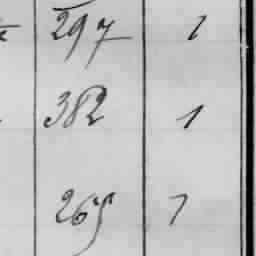 297 1
382 1
265 1